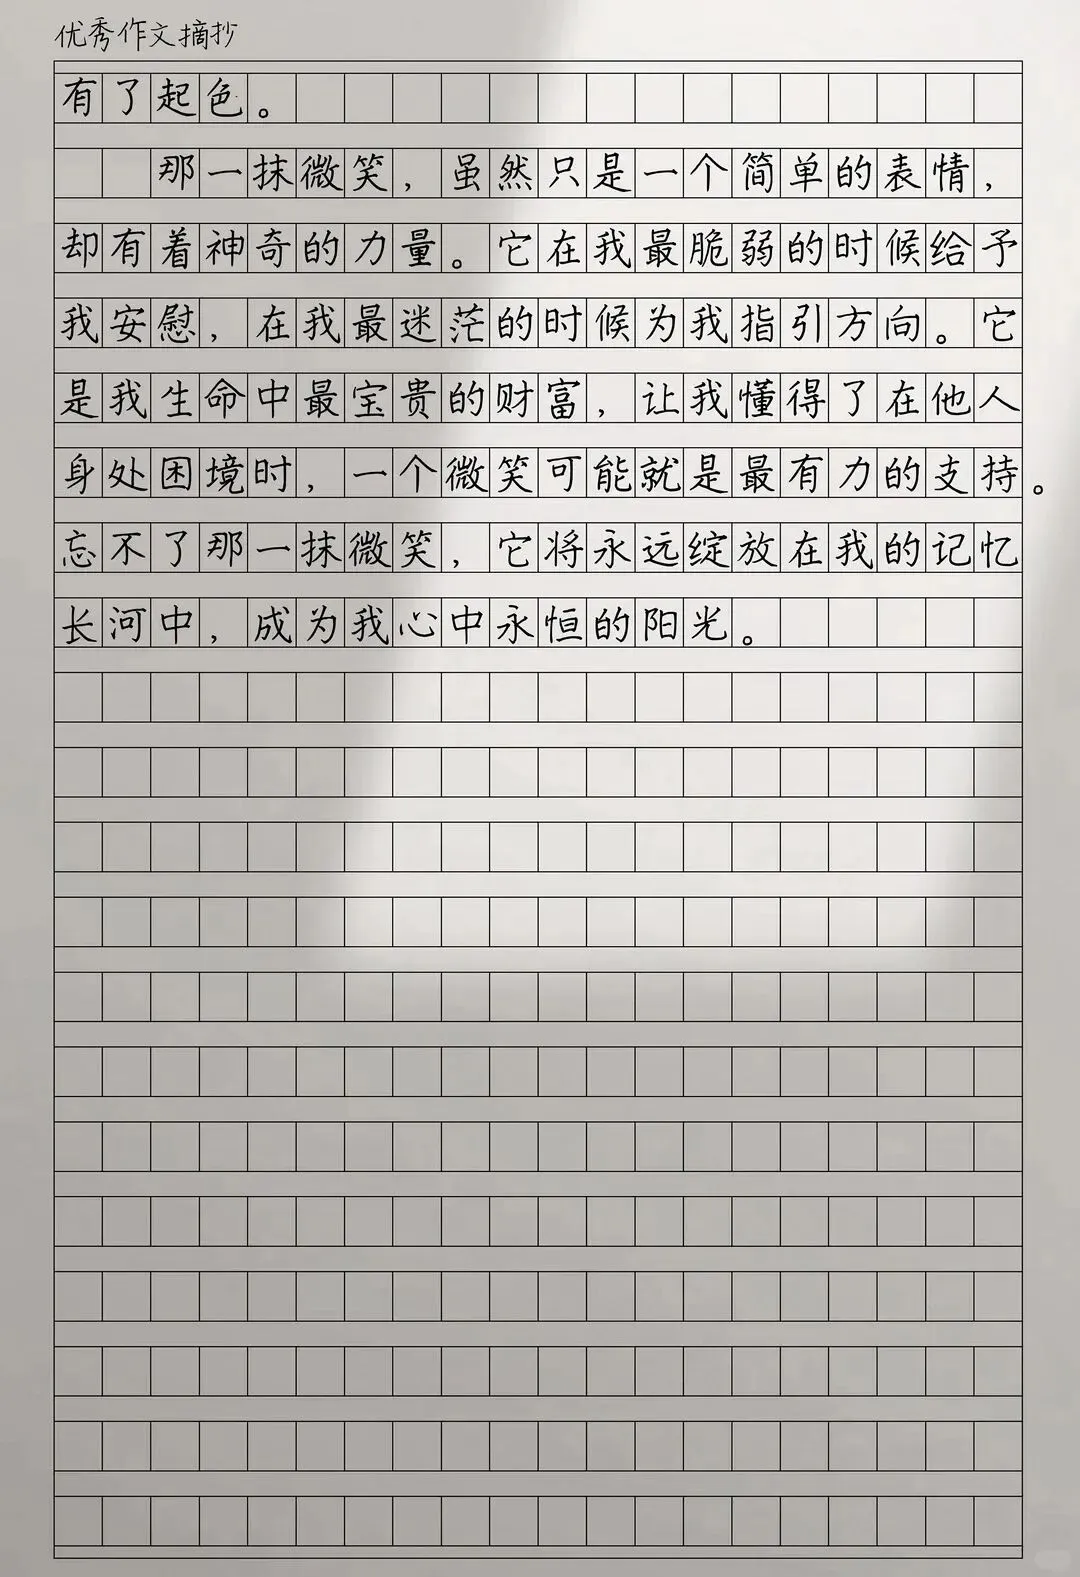 优秀作文摘抄
有了起色。
那一抹微笑，虽然只是一个简单的表情，
却有着神奇的力量。它在我最脆弱的时候给予
我安慰，在我最迷茫的时候为我指引方向。它
是我生命中最宝贵的财富，让我懂得了在他人
身处困境时，一个微笑可能就是最有力的支持。
忘不了那一抹微笑，它将永远绽放在我的记忆
长河中，成为我心中永恒的阳光。